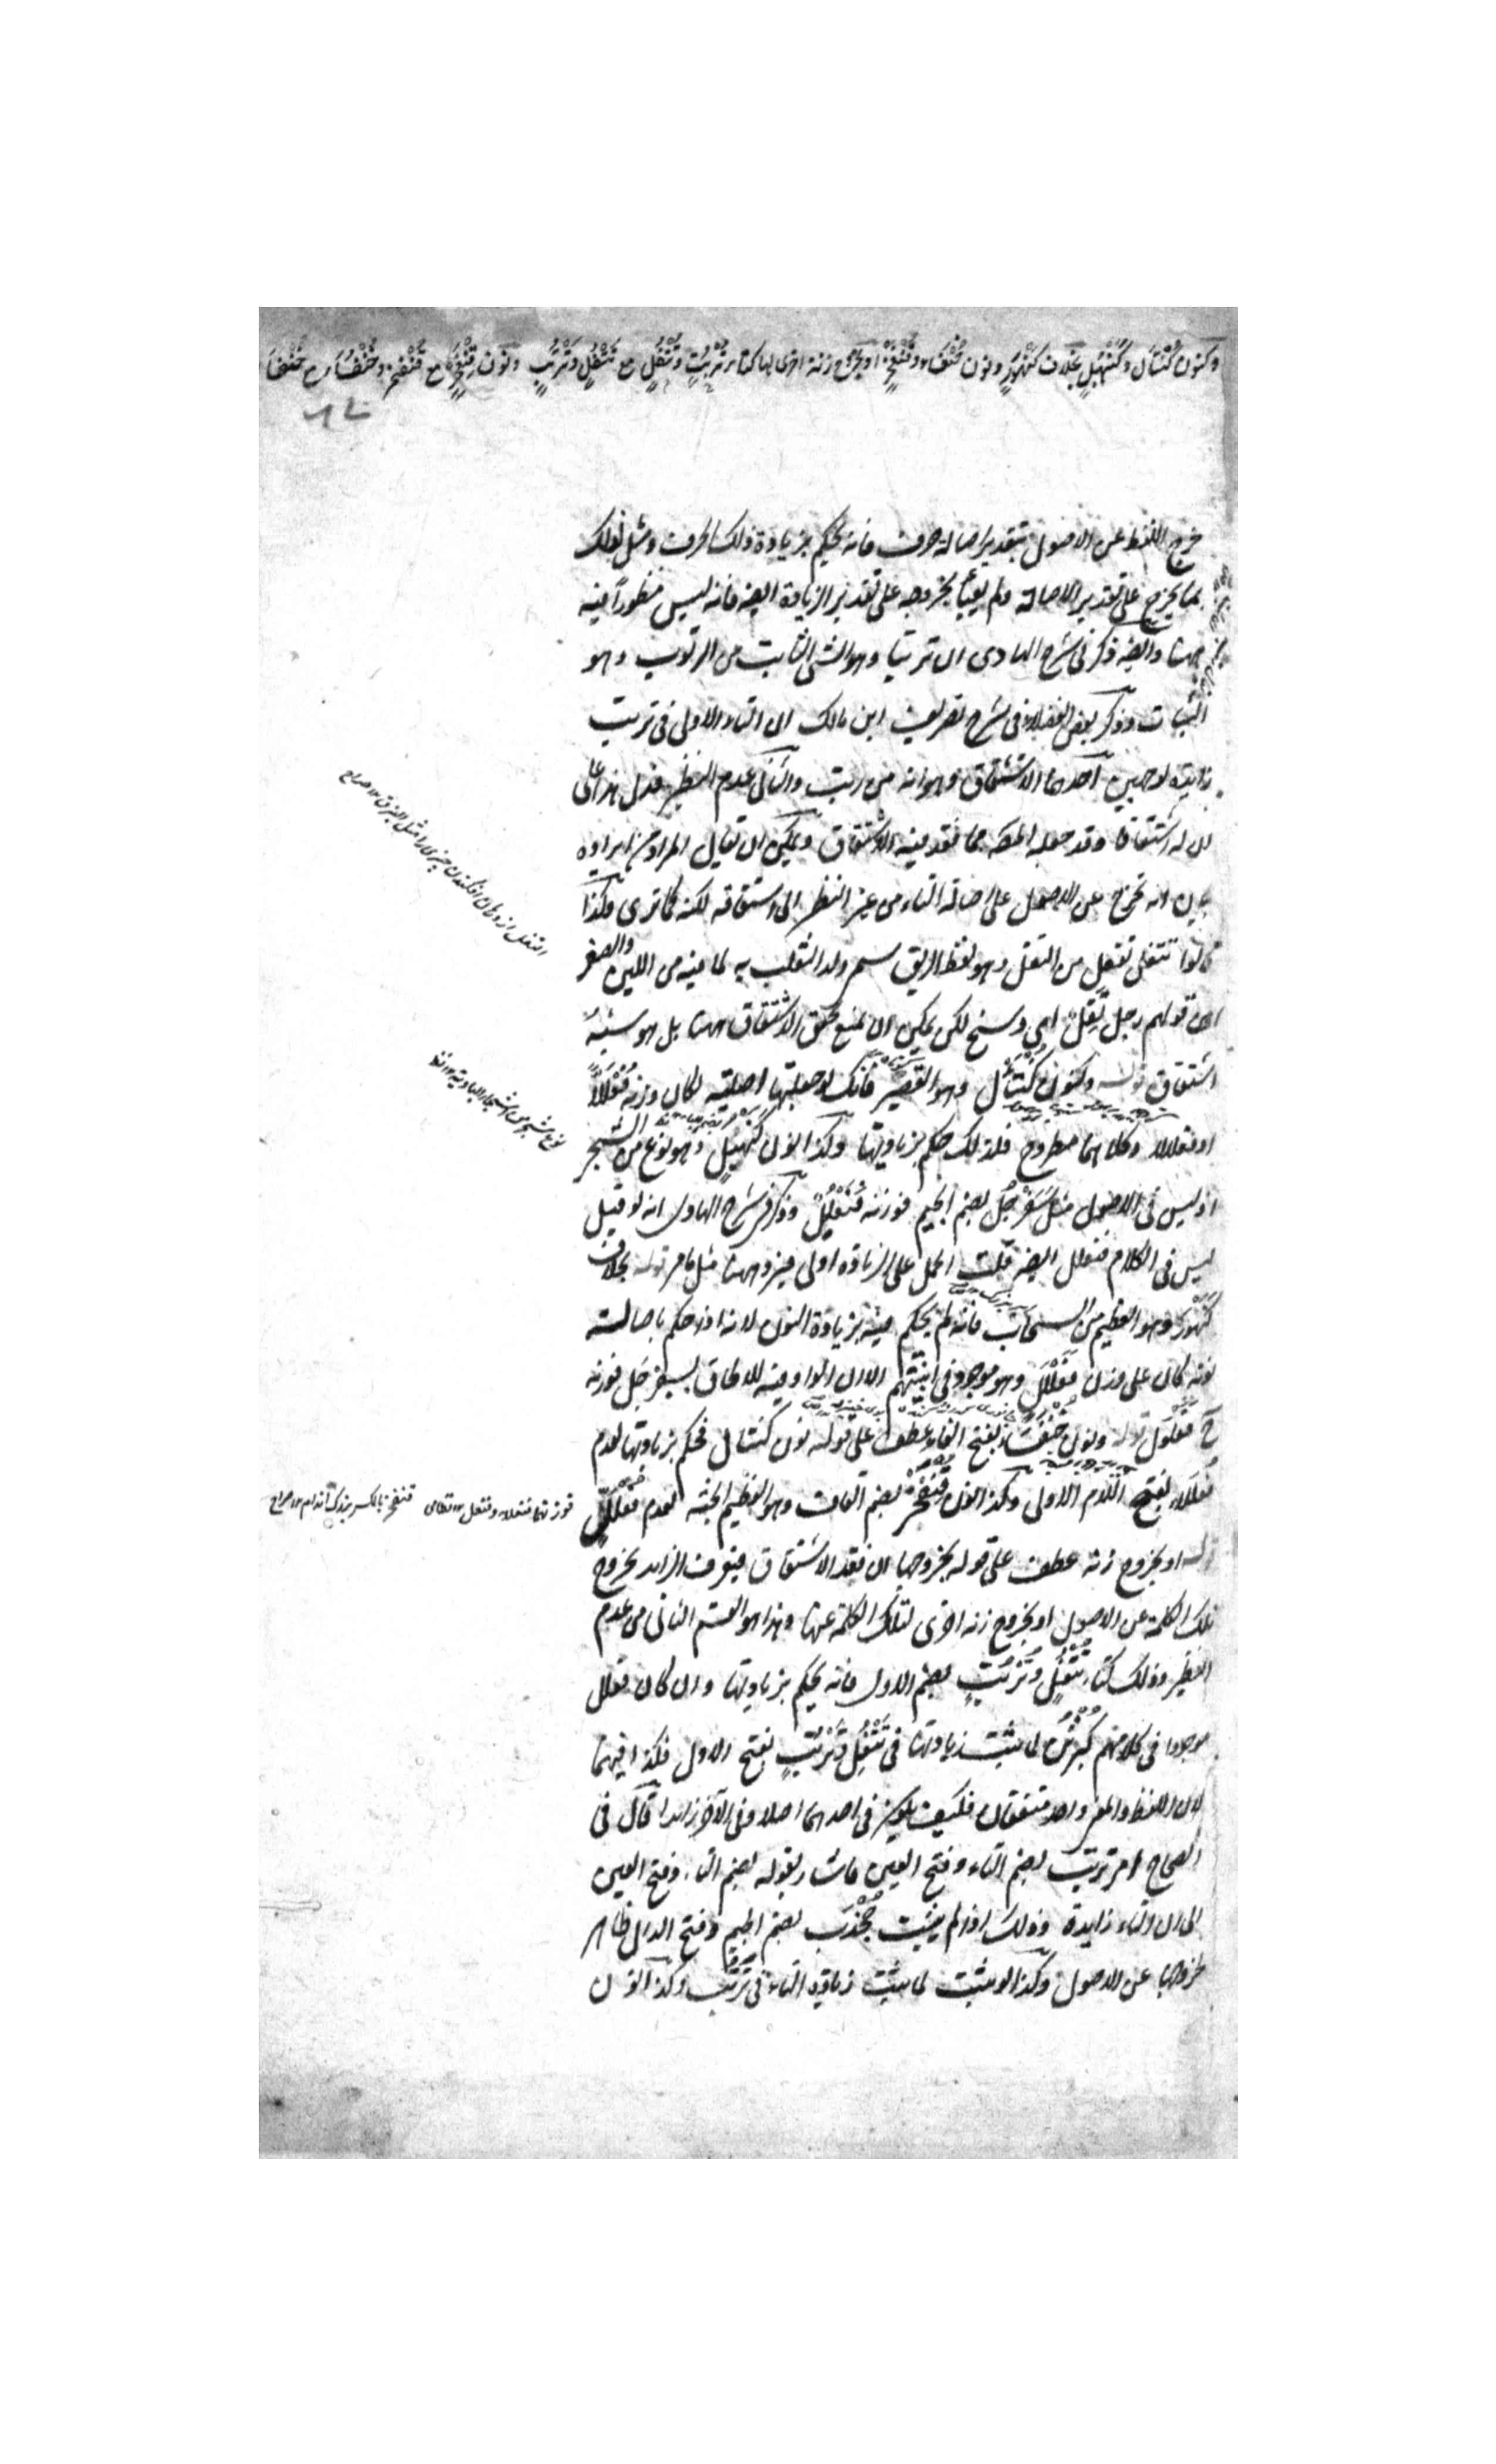 وكنون كُنْتَأَل وكَنَهْبُل بخلاف كَنَهْوَر ونون خُنْفَساء وقُنْفَخْر او بخروج زنة اخرى لها كتاء تُرْتُبٍ وتُتْفُلٍ مع تَتْفُلٍ وتَرْتُبٍ ونون قِنْفَخْر مع قُنْفَخْر وخُنْفُساء مع خُنْفَساء
خرج اللفظ عن الاصول بتقدير اصالة حرف فانه يحكم بزيادة ذلك الحرف ومثل ذلك
بما يخرج على تقدير الاصالة ولم يعبأ بخروجه على تقدير الزيادة ايضا فانه ليس منظورا فيه
ههنا وايضا ذكر فى شرح الهادى ان ترتبا وهو الشئ الثابت من الرتوب وهو
الثبات وذكر بعض الفضلاء فى شرح تصريف ابن مالك ان التاء الاولى فى ترتب
زايدة لوجهين احدهما الاشتقاق وهو انه من رتب والثانى عدم النظير فدل هذا على
ان له اشتقاقا وقد جعله المصنف مما فقد فيه الاشتقاق ويمكن ان يقال المراد من ايراده
بيان انه تخرج عن الاصول على اصالة التاء من غير النظر الى اشتقاقه لكنه كما ترى وكذا
قالوا تتفل تفعل من التفل وهو لفظ الريق سمى ولد الثعلب به لما فيه من اللين والصغر
من قولهم رجل تفل اى وسخ لكن يمكن ان يمنع تحقق الاشتقاق ههنا بل هو شبه
اشتقاق قوله وكنون كُنْتَأل وهو القصير فانك لو جعلتها اصلية لكان وزنه فُعْلَلّا
او فعلالا وكلاهما مطروح فلذلك حكم بزيادتها وكذا نون كَنَهْبُلٍ وهو نوع من الشجر
اذ ليس فى الاصول مثل سَفَرْجُل بضم الجيم فوزنه فَنَعْلُل وذكر فى شرح الهادى انه لو قيل
ليس فى الكلام فنعلل ايضا قلت الحمل على الزيادة اولى فيزو ههنا مثل ما مر قوله بخلاف
كَنَهْوَر وهو العظيم من السحاب فانه لم يحكم فيه بزيادة النون لانه اذا حكم باصالة
نونه كان على وزن فَعَلْلَل وهو موجود فى ابنيتهم الا ان الواو فيه للالحاق بسفرجل فوزنه
ح فَعَلْوَل قوله ونون خُنْفَساء بفتح الفاء عطف على قوله نون كنتال فحكم بزيادتها لعدم
فُعْلَلاء بفتح اللام الاولى وكذا نون قُنْفَخْر بضم القاف وهو العظيم الجثة لعدم فُعْلَلٍّ
قوله او بخروج زنة عطف على قوله بخروجها ان فقد الاشتقاق فيعرف الزايد بخروج
تلك الكلمة عن الاصول او بخروج زنة اخرى لتلك الكلمة عنها وهذا هو القسم الثانى من عدم
النظير وذلك كتاء تُتْفُلٍ وتُرْتُبٍ بضم الاول فانه يحكم بزيادتها وان كان فعلل
موجودا فى كلامهم كبُرْثُن لما ثبت زيادتها فى تَتْفُل وتَرْتُبٍ بفتح الاول فكذا فيهما
لان اللفظ والمعنى واحد متفقان فكيف يكون فى احدهما اصلا وفى الآخر زايدا قال فى
الصحاح امر ترتب بضم التاء وفتح العين فاشار بقوله بضم التاء وفتح العين
الى ان التاء زايدة وذلك اذا لم يثبت جُخْدَب بضم الجيم وفتح الدال ظاهر
لخروجها عن الاصول وكذا لو ثبت لما ثبت زيادة التاء فى تَرْتُب وكذا النون
نوع شجر من اشجار البادية
فوزنهما فنعلاء وفنعل
قنفخر بالكسر بزرگ اندام صراح